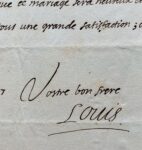 ce mariage sera heureux
vous une grande satisfaction
Vostre bon frere
Louis